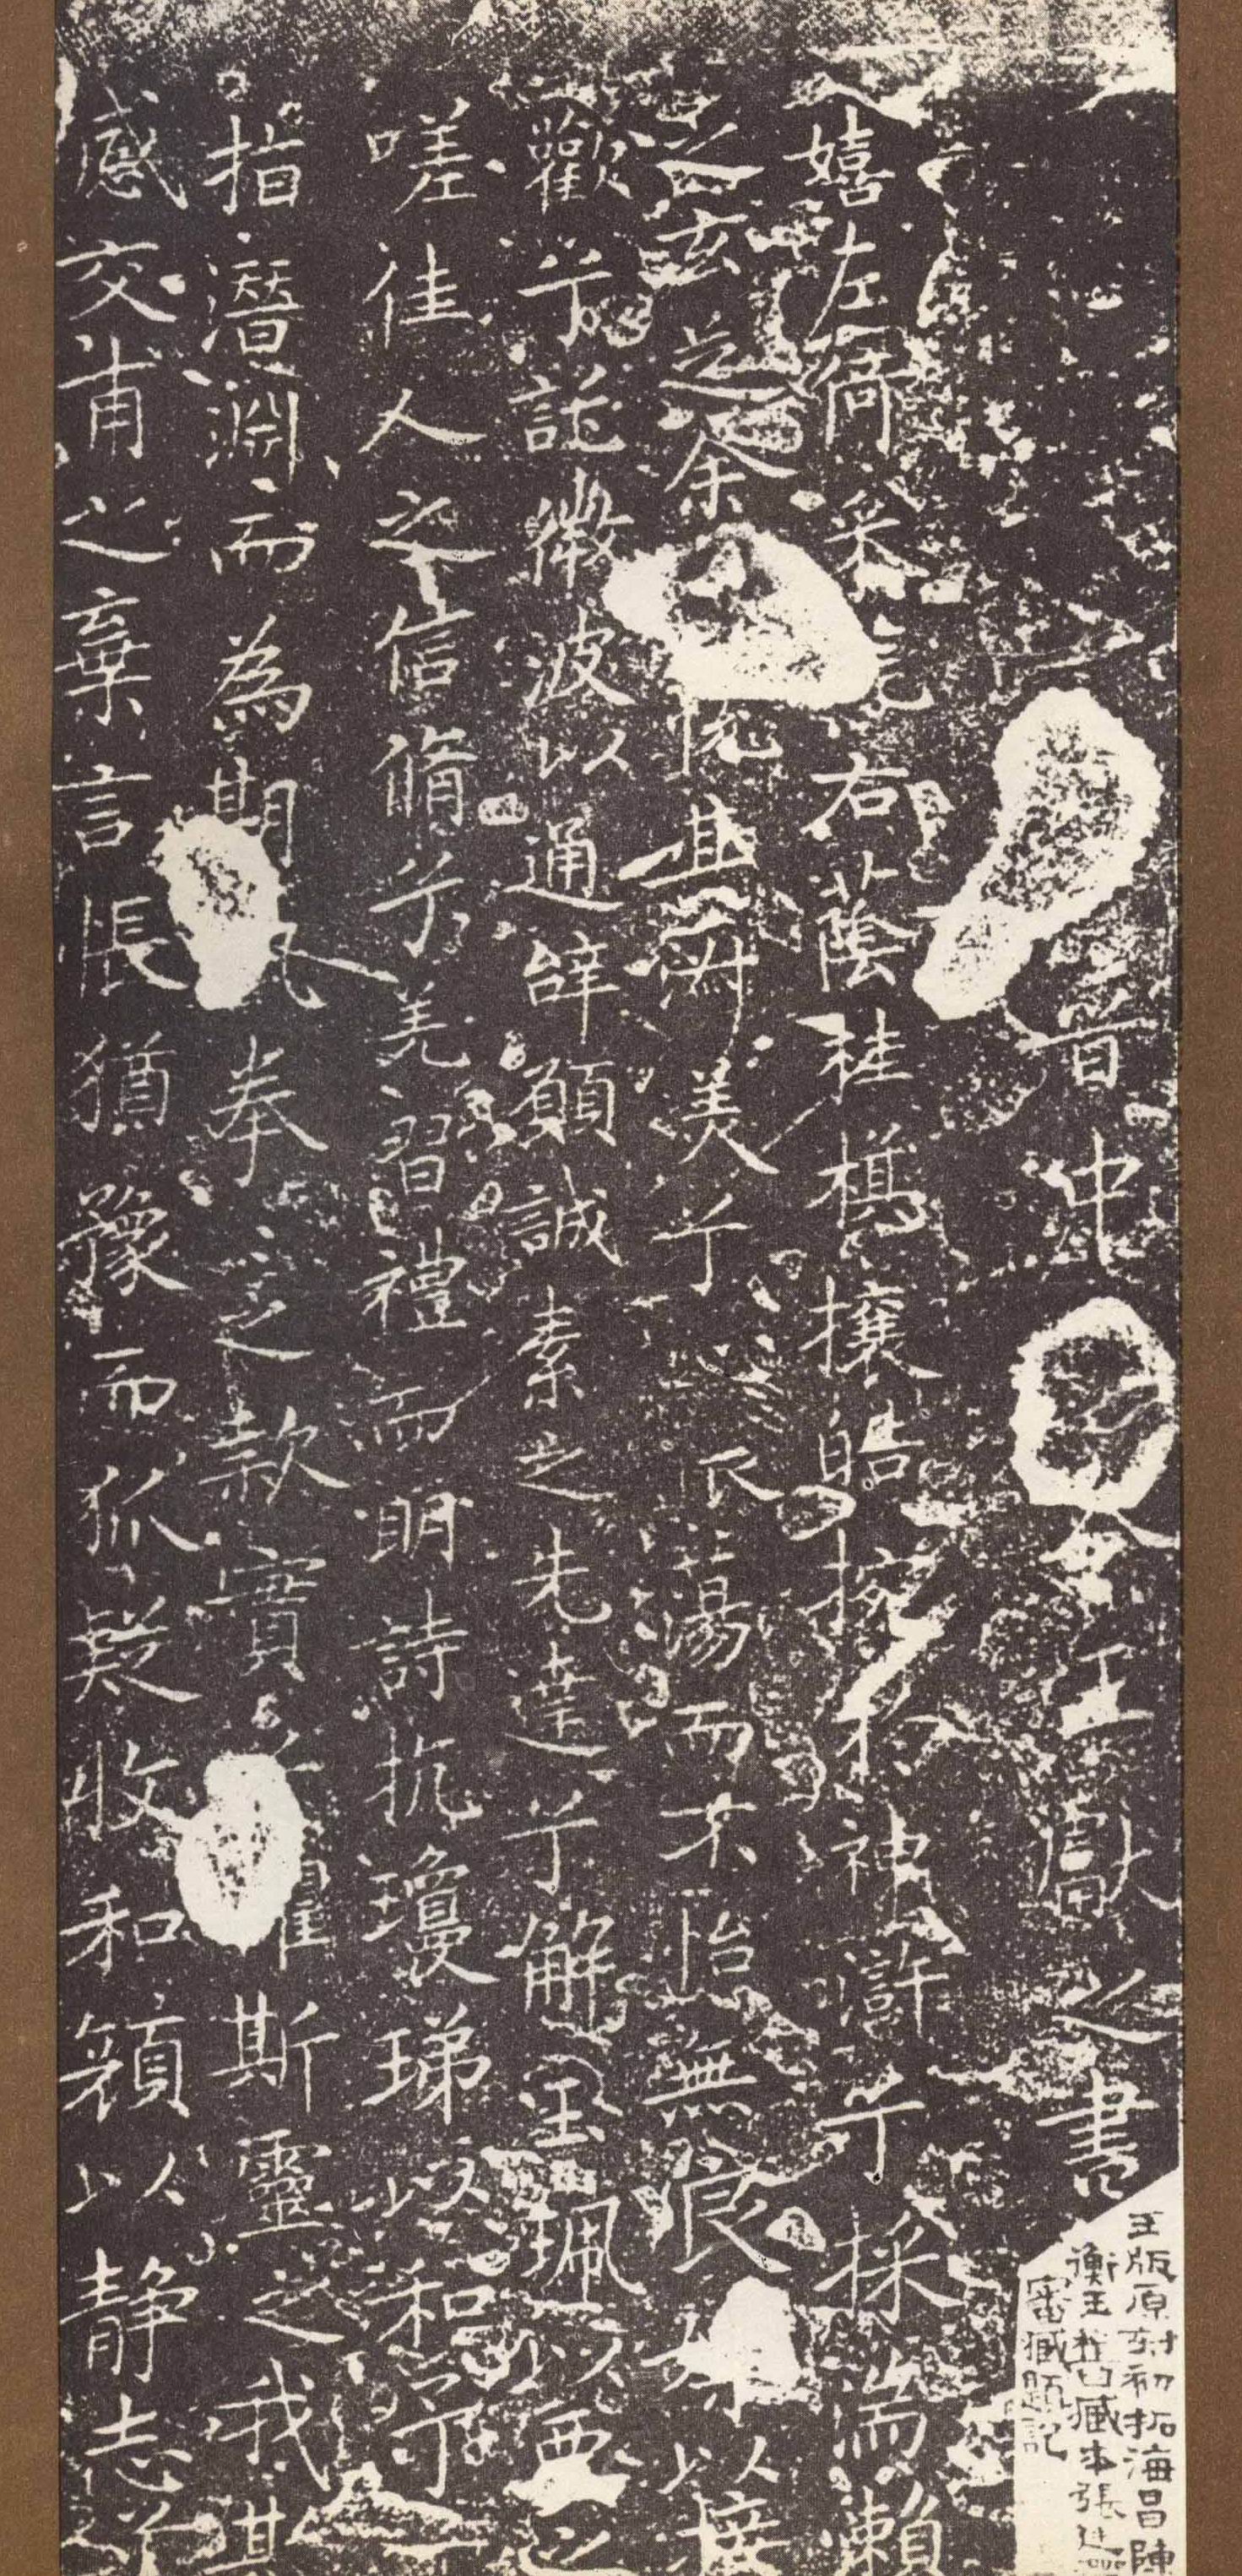 晉中令王獻之書
玉版原刻初拓海昌陳
衡玉舊藏本張
審藏題記
嬉左倚采旄右蔭桂旗攘皓捥於神滸兮採湍瀨
之玄芝余悅其淑美兮心振蕩而不怡無良媒以接
歡兮託微波以通辞願誠素之先達兮解玉珮以要之
嗟佳人之信脩兮羌習禮而明詩抗瓊珶以和予兮
指潛淵而為期執拳之款實兮懼斯靈之我其
感交甫之棄言悵猶豫而狐疑收和顏以靜志兮